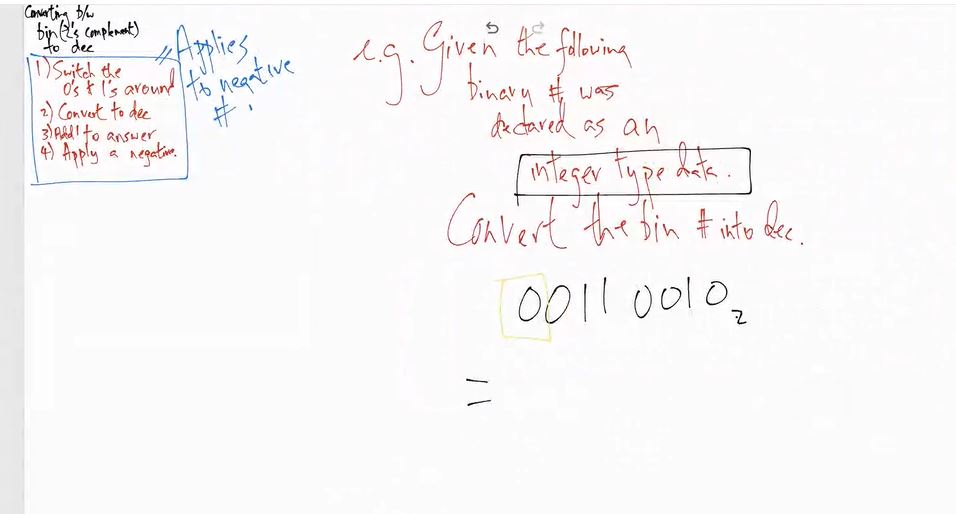 Converting b/w
bin (2's complement)
to dec
1) Switch the
0's & 1's around
2) Convert to dec
3) Add 1 to answer
4) Apply a negative.
Applies
to negative
#.
e.g. Given the following
binary # was
declared as an
integer type data.
Convert the bin # into dec.
0011 0010₂
=